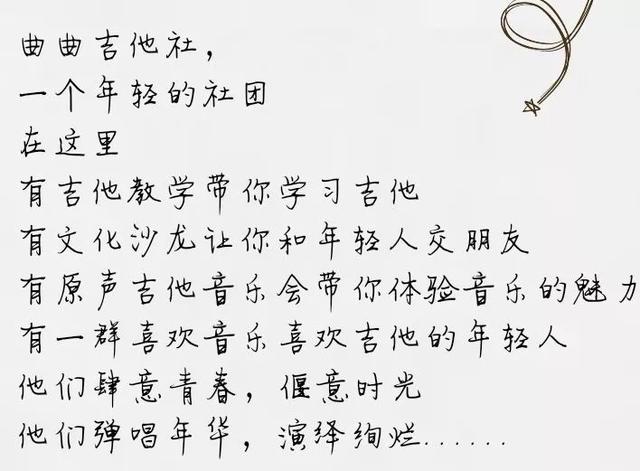 曲曲吉他社，
一个年轻的社团
在这里
有吉他教学带你学习吉他
有文化沙龙让你和年轻人交朋友
有原声吉他音乐会带你体验音乐的魅力
有一群喜欢音乐喜欢吉他的年轻人
他们肆意青春，偃意时光
他们弹唱年华，演绎绚烂......